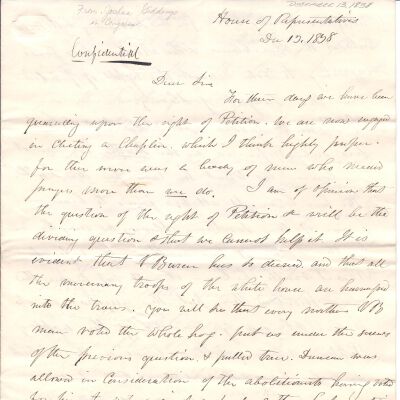 From Joshua Giddings
in Congress
December 13, 1838
House of Representatives
Dec 13, 1838
Confidential
Dear Sir
For three days we have been
upon the right of Petition. We are now engaged
in Electing a Chaplin, which I think highly proper.
for there never was a body of men who need
prayers more than we do. I am of opinion that
the question of the right of Petition will be the
dividing question & that we cannot help it. It is
evident that V Buren has so decreed, and that all
the mercenary troops of the white house are
into the traces. You will see that every northern VB
man voted the whole hog. put us under the screws
of the previous question, & pulled true. Duncan was
allowed in Consideration of the abolitionists having voted
for him to